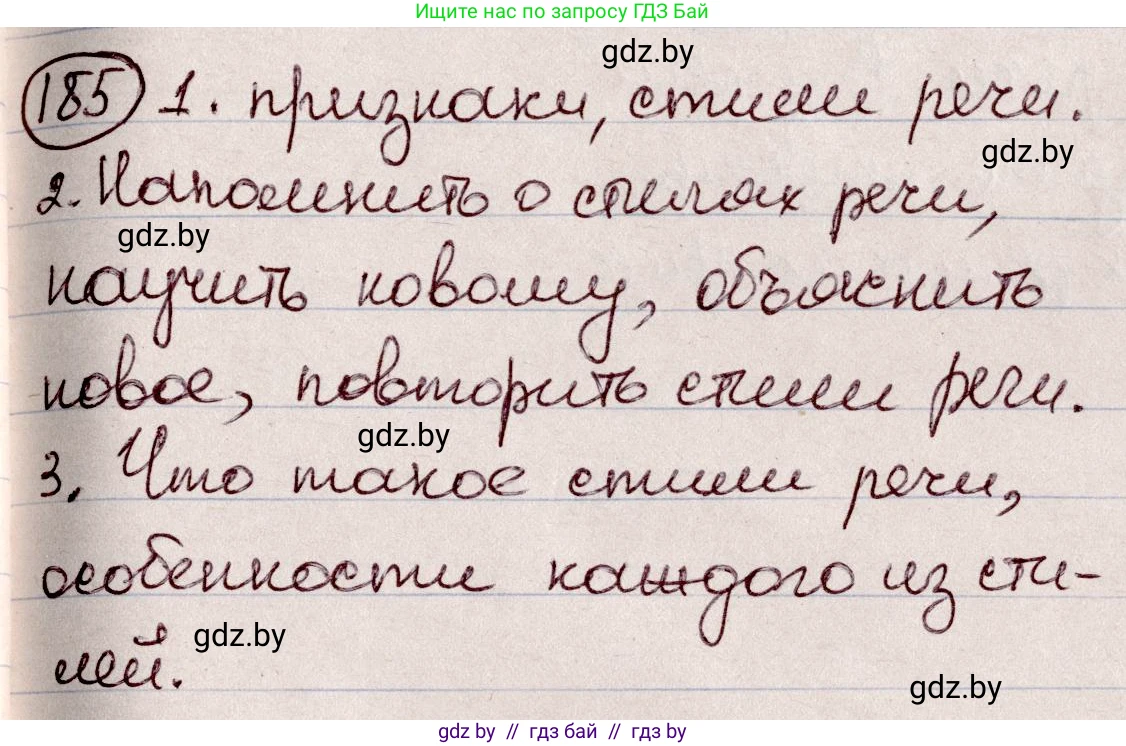 Ищите нас по запросу ГДЗ Бай
gdz.by
185 1. признаки, стили речи.
gdz.by
2. Напомнить о стилях речи,
gdz.by
научить новому, объяснить
новое, повторить стили речи.
gdz.by
3. Что такое стили речи,
особенности каждого из сти-
gdz.by
лей.
gdz.by
gdz by // гдз бай // гдз by